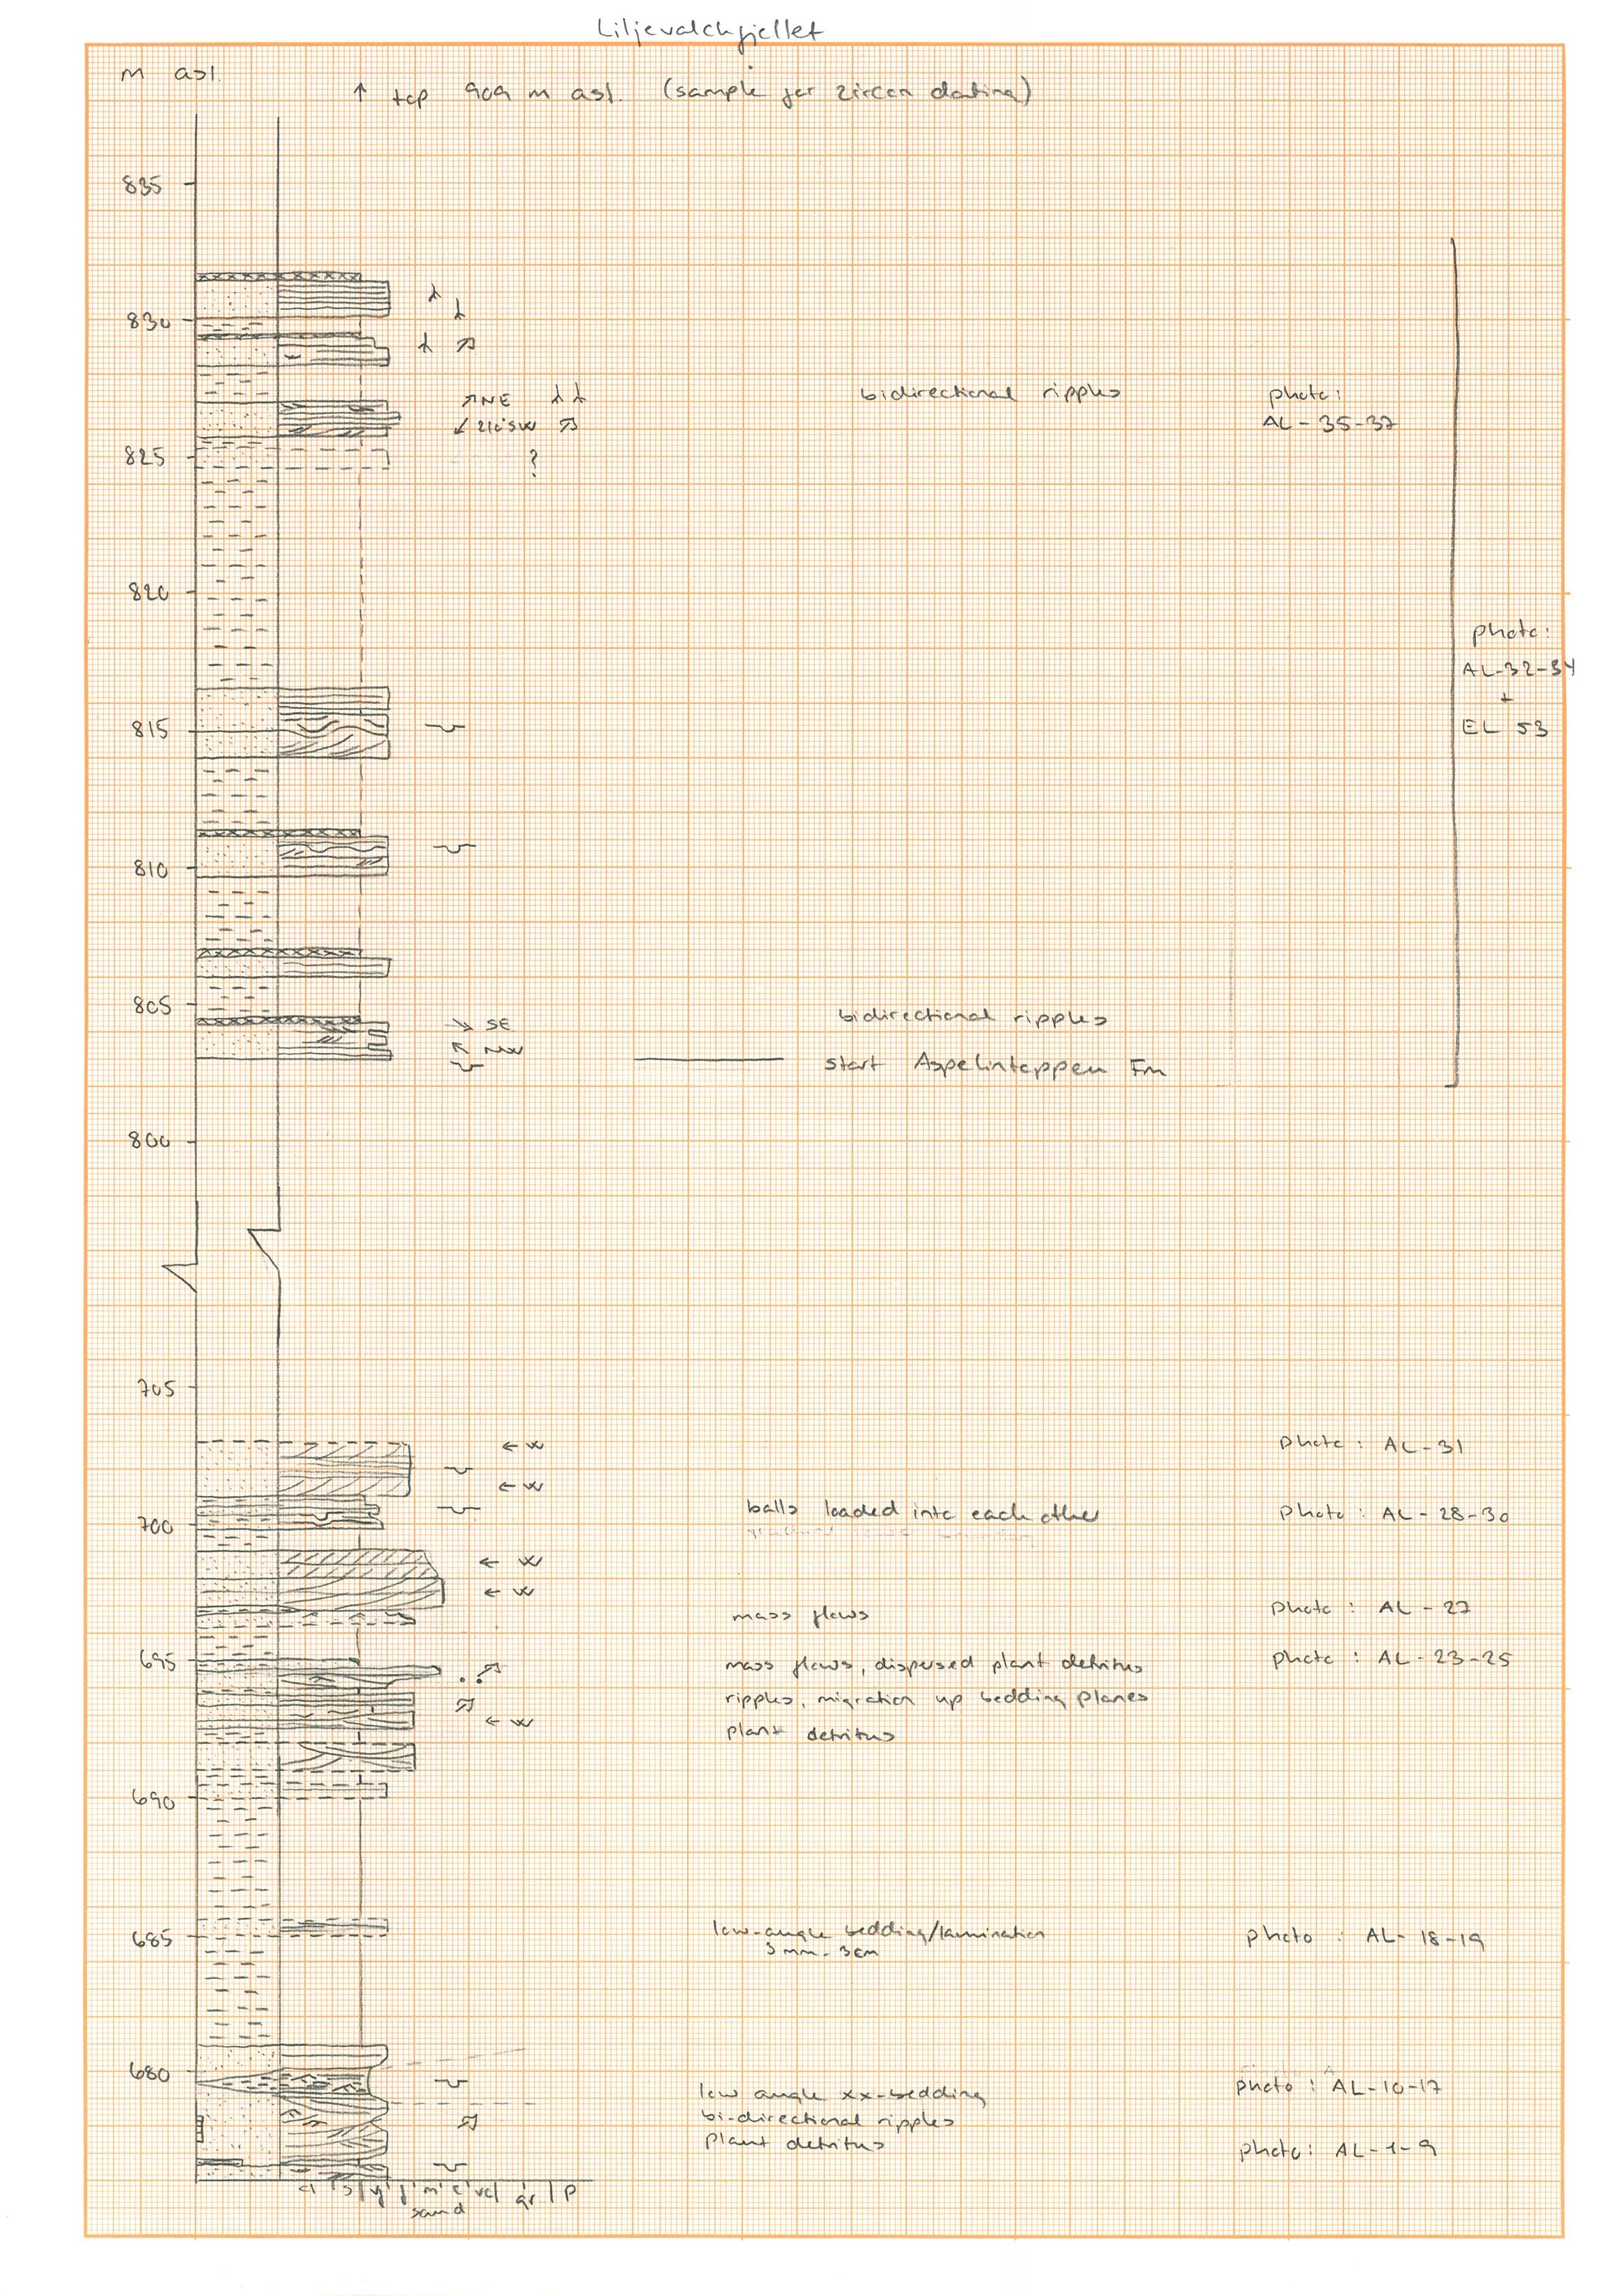 Liljevalchfjellet
m asl.
↑ top 909 m asl. (sample for zircon dating)
835
830
↗ NE
bidirectional ripples
photo:
↙ 210° SW
AL-35-37
825
?
820
photo:
AL-32-34
+
EL 53
815
810
805
bidirectional ripples
↘ SE
↖ NW
start Aspelintoppen Fm
800
705
← W
photo: AL-31
← W
700
balls loaded into each other
photo: AL-28-30
← W
← W
mass flows
photo: AL-27
695
mass flows, dispersed plant detritus
photo: AL-23-25
ripples, migration up bedding planes
← W
plant detritus
690
685
low-angle bedding/lamination
photo: AL-18-19
3 mm - 3cm
680
low angle xx-bedding
photo: AL-10-17
bi-directional ripples
plant detritus
photo: AL-1-9
cl | s | vf | f | m | c | vc | gr | P
sand